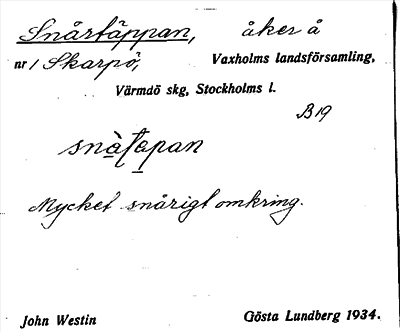 Snårtäppan, åker å
nr 1 Skarpö, Vaxholms landsförsamling,
Värmdö skg, Stockholms l.
B19
snàtapan
Mycket snårigt omkring.
John Westin Gösta Lundberg 1934.